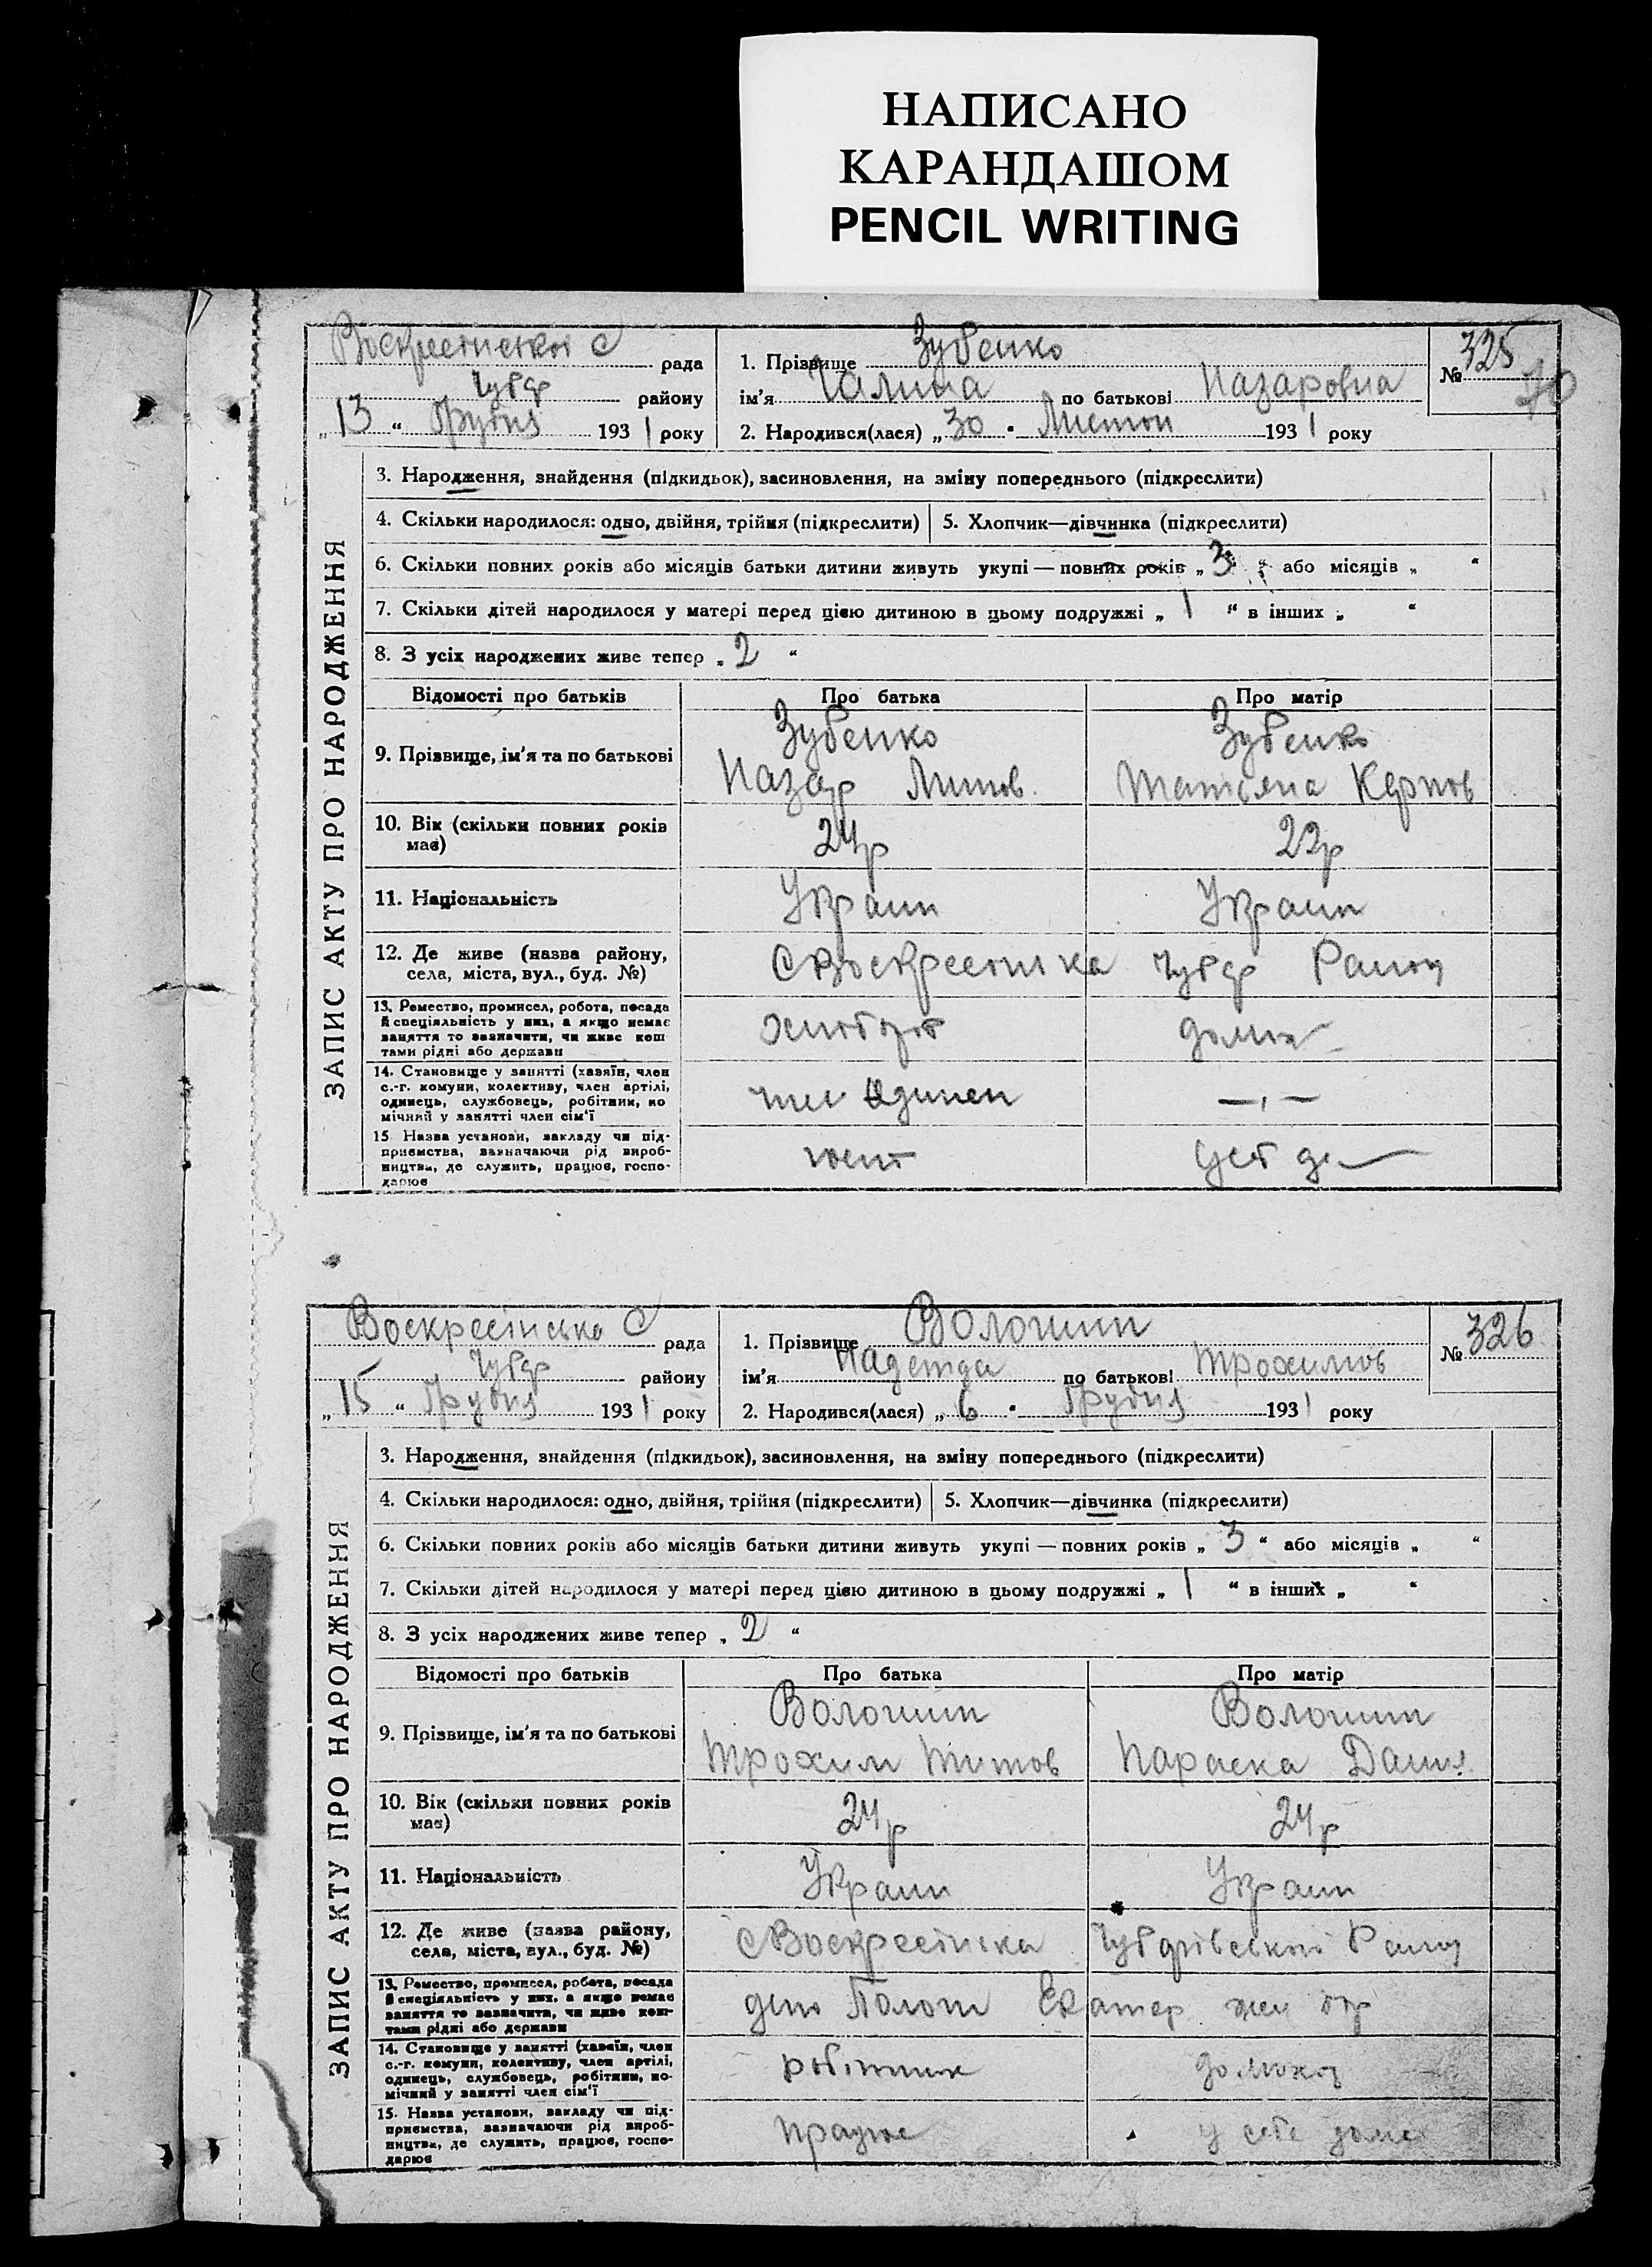 НАПИСАНО
КАРАНДАШОМ
PENCIL WRITING
с рада
Чубар району
„13 “ Грудня 1931 року
1. Прізвище Зубенко
ім'я Галина по батькові Назаровна
2. Народився(лася) „30 " Листоп 1931 року
№ 325
70
ЗАПИС АКТУ ПРО НАРОДЖЕННЯ
3. Народження, знайдення (підкидьок), засиновлення, на зміну попереднього (підкреслити)
4. Скільки народилося: одно, двійня, трійня (підкреслити)
5. Хлопчик—дівчинка (підкреслити)
6. Скільки повних років або місяців батьки дитини живуть укупі — повних років „ 3 “ або місяців „ “
7. Скільки дітей народилося у матері перед цією дитиною в цьому подружжі „ 1 “ в інших „ “
8. З усіх народжених живе тепер „ 2 “
Відомості про батьків Про батька Про матір
9. Прізвище, ім'я та по батькові
Зубенко Зубенко
Назар Татьяна Карпов
10. Вік (скільки повних років має)
24р 22р
11. Національність
Украин Украин
12. Де живе (назва району, села, міста, вул., буд. №)
с Воскресенска Чубар Району
13. Ремество, промисел, робота, посада й спеціяльність у них, а якщо немає заняття то зазначити, чи живе коштами рідні або держави
14. Становище у занятті (хазяїн, член с.-г. комуни, колективу, член артілі, одинець, службовець, робітник, помічний у занятті член сім'ї
— „ —
15. Назва установи, закладу чи підприємства, зазначаючи рід виробництва, де служить, працює, господарює
Воскресінська С рада
Чубар району
„15 “ Грудня 1931 року
1. Прізвище Волошин
ім'я Надежда по батькові Трохимов
2. Народився(лася) „6 " Грудня 1931 року
№ 326
ЗАПИС АКТУ ПРО НАРОДЖЕННЯ
3. Народження, знайдення (підкидьок), засиновлення, на зміну попереднього (підкреслити)
4. Скільки народилося: одно, двійня, трійня (підкреслити)
5. Хлопчик—дівчинка (підкреслити)
6. Скільки повних років або місяців батьки дитини живуть укупі — повних років „ 3 “ або місяців „ “
7. Скільки дітей народилося у матері перед цією дитиною в цьому подружжі „ 1 “ в інших „ “
8. З усіх народжених живе тепер „ 2 “
Відомості про батьків Про батька Про матір
9. Прізвище, ім'я та по батькові
Волошин Волошин
Трохим Титов Параска Данил
10. Вік (скільки повних років має)
24р 24р
11. Національність
Украин Украин
12. Де живе (назва району, села, міста, вул., буд. №)
с Воскресенска Чубарівської Району
13. Ремество, промисел, робота, посада й спеціяльність у них, а якщо немає заняття то зазначити, чи живе коштами рідні або держави
депо Полог Екатер
14. Становище у занятті (хазяїн, член с.-г. комуни, колективу, член артілі, одинець, службовець, робітник, помічний у занятті член сім'ї
робітник
15. Назва установи, закладу чи підприємства, зазначаючи рід виробництва, де служить, працює, господарює
працює у себе дома